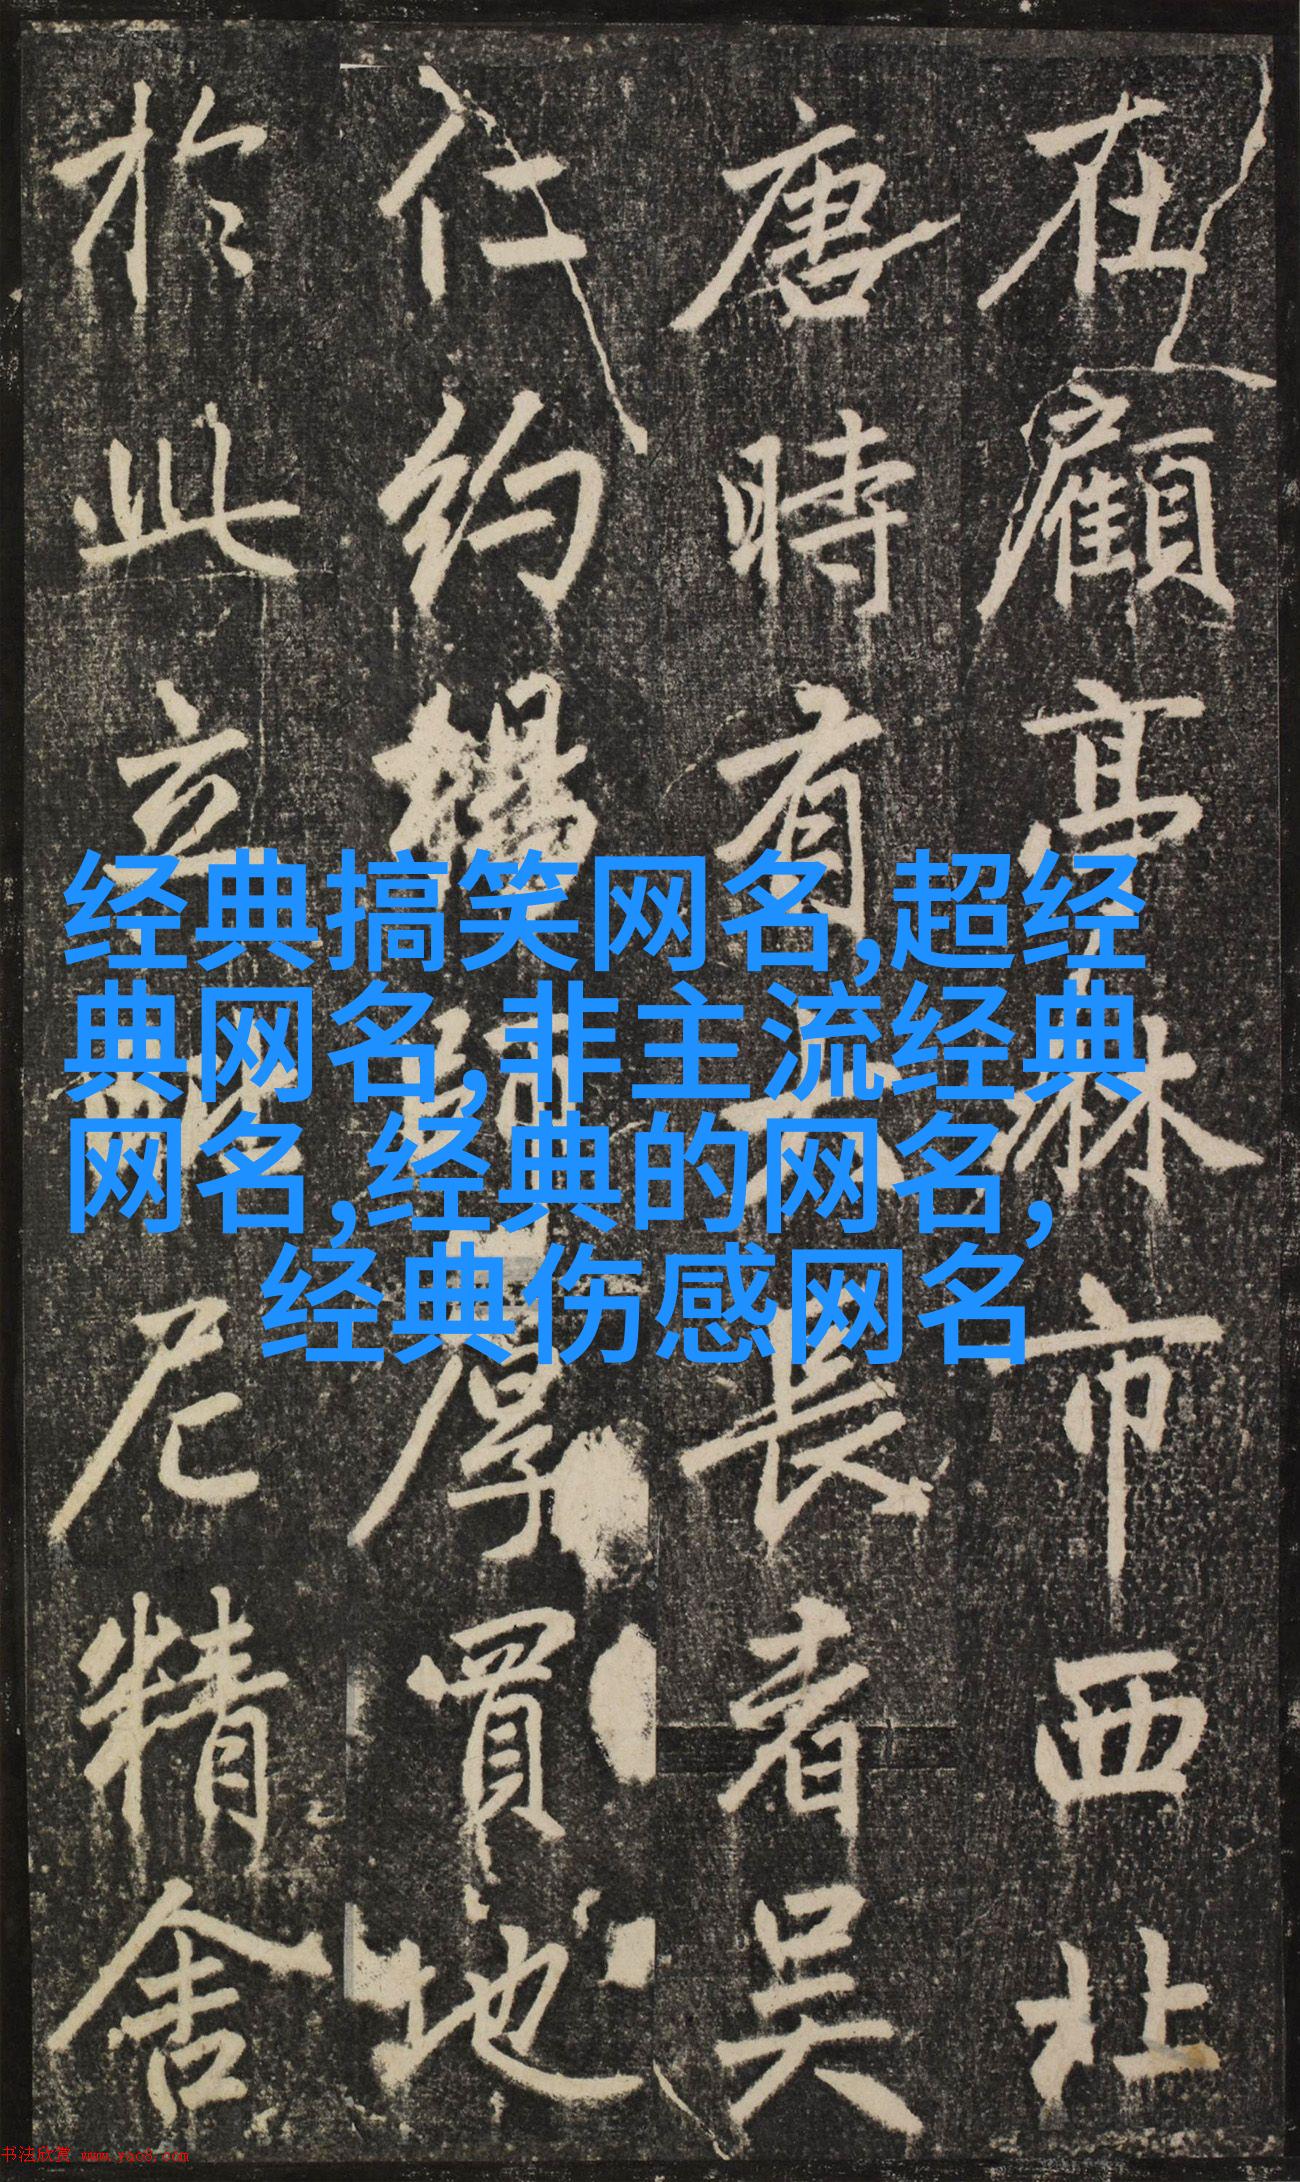 在顧亭林市西北
唐時有大長者吴
仁約厚買地
於此立尼精舍
经典搞笑网名,超经
典网名,非主流经典
网名,经典的网名,
经典伤感网名
书法欣赏 www.yac8.com